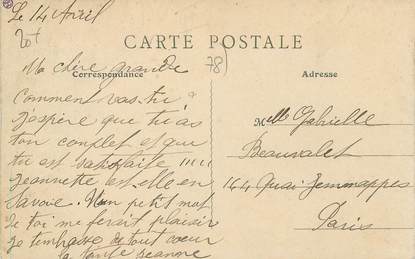 Le 14 Avril
20f
CARTE POSTALE
Ma chère grande
78)
Correspondance
Adresse
Comment vas-tu ?
J'espère que tu as
ton complet et que
tu es satisfaite !!!!!
Jeannette est-elle en
Savoie. Un petit mot
de toi me ferait plaisir
Je t'embrasse de tout coeur
ta tante Jeanne
Melle Gabrielle
Beauvalet
164 Quai Jemmappes
Paris